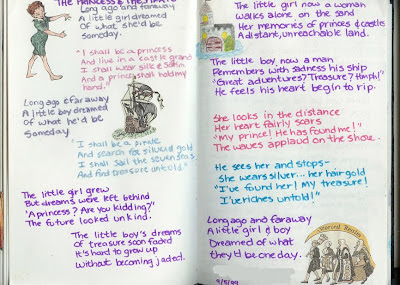 THE PRINCESS & THE PIRATE
Long ago and faraway
A little girl dreamed
Of what she'd be
Someday.
"I shall be a princess
And live in a castle grand
I shall wear silk & satin
And a prince shall hold my
hand."
Long ago & faraway
A little boy dreamed
Of what he'd be
Someday
"I shall be a pirate
And search for silver & gold
I shall sail the seven seas
And find treasure untold."
The little girl grew
But dreams were left behind
'A princess? Are you kidding?"
The future looked unkind.
The little boy's dreams
Of treasure soon faded
It's hard to grow up
Without becoming jaded.
The little girl now a woman
walks alone on the sand
Her memories of princes & castles
A distant, unreachable land.
The little boy, now a man
Remembers with sadness his ship
"Great adventures? Treasure? Hmph!"
He feels his heart begin to rip.
She looks in the distance
Her heart fairly soars
"My prince! He has found me!"
The waves applaud on the shore.
He sees her and stops-
She wears silver... her hair gold
"I've found her! My treasure!
I'v eriches untold!"
Long ago and faraway
A little girl & boy
Dreamed of what
they'd be one day.
9/5/99